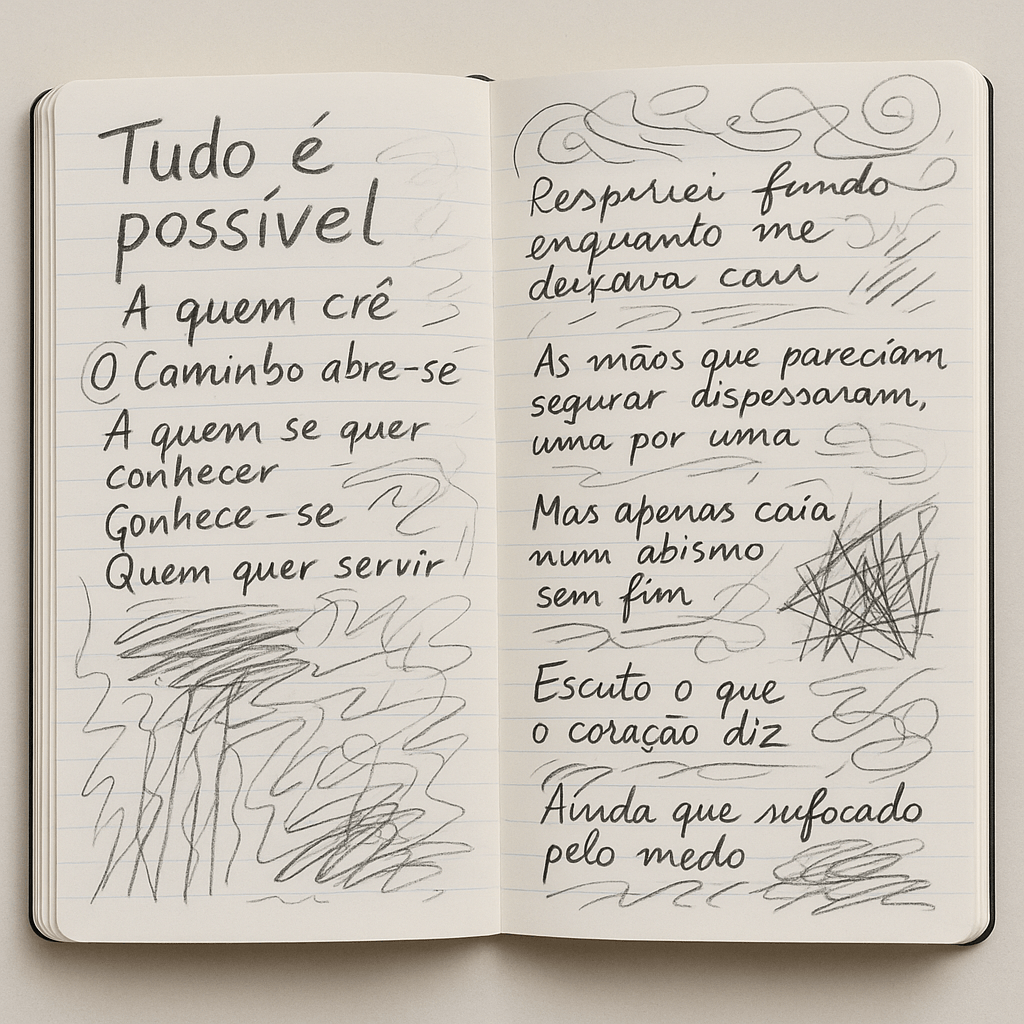 Tudo é
possível
A quem crê
O Caminbo abre-se
A quem se quer
conhecer
Gonhece-se
Quem quer servir
Respiriei fundo
enquanto me
deixava cair
As mãos que pareciam
segurar dispessaram,
uma por uma
Mas apenas caía
num abismo
sem fim
Escuto o que
o coração diz
Ainda que sufocado
pelo medo